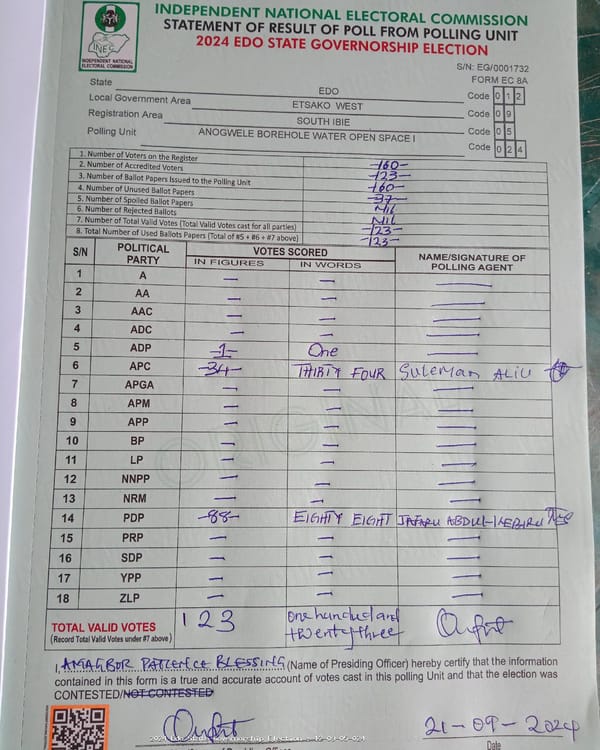 INDEPENDENT NATIONAL ELECTORAL COMMISSION
STATEMENT OF RESULT OF POLL FROM POLLING UNIT
2024 EDO STATE GOVERNORSHIP ELECTION
INEC
INDEPENDENT NATIONAL
ELECTORAL COMMISSION
S/N: EG/0001732
FORM EC 8A
State EDO Code 0 1 2
Local Government Area ETSAKO WEST Code 0 9
Registration Area SOUTH IBIE Code 0 5
Polling Unit ANOGWELE BOREHOLE WATER OPEN SPACE I Code 0 2 4
1. Number of Voters on the Register -160-
2. Number of Accredited Voters -123-
3. Number of Ballot Papers Issued to the Polling Unit -160-
4. Number of Unused Ballot Papers -37-
5. Number of Spoiled Ballot Papers Nil
6. Number of Rejected Ballots Nil
7. Number of Total Valid Votes (Total Valid Votes cast for all parties) -123-
8. Total Number of Used Ballots Papers (Total of #5 + #6 + #7 above) -123-
S/N POLITICAL PARTY VOTES SCORED NAME/SIGNATURE OF POLLING AGENT
IN FIGURES IN WORDS
1 A — — —
2 AA — — —
3 AAC — — —
4 ADC — — —
5 ADP -1- One —
6 APC -34- THIRTY FOUR SULEMAN ALIU
7 APGA — — —
8 APM — — —
9 APP — — —
10 BP — — —
11 LP — — —
12 NNPP — — —
13 NRM — — —
14 PDP -88- EIGHTY EIGHT JAFARU ABDUL-
15 PRP — — —
16 SDP — — —
17 YPP — — —
18 ZLP — — —
ORIGINAL
TOTAL VALID VOTES 123 One hundred and
(Record Total Valid Votes under #7 above) twenty three
I, AMAGBOR PATIENCE BLESSING (Name of Presiding Officer) hereby certify that the information
contained in this form is a true and accurate account of votes cast in this polling Unit and that the election was
CONTESTED/NOT CONTESTED
21-09-2024
Date